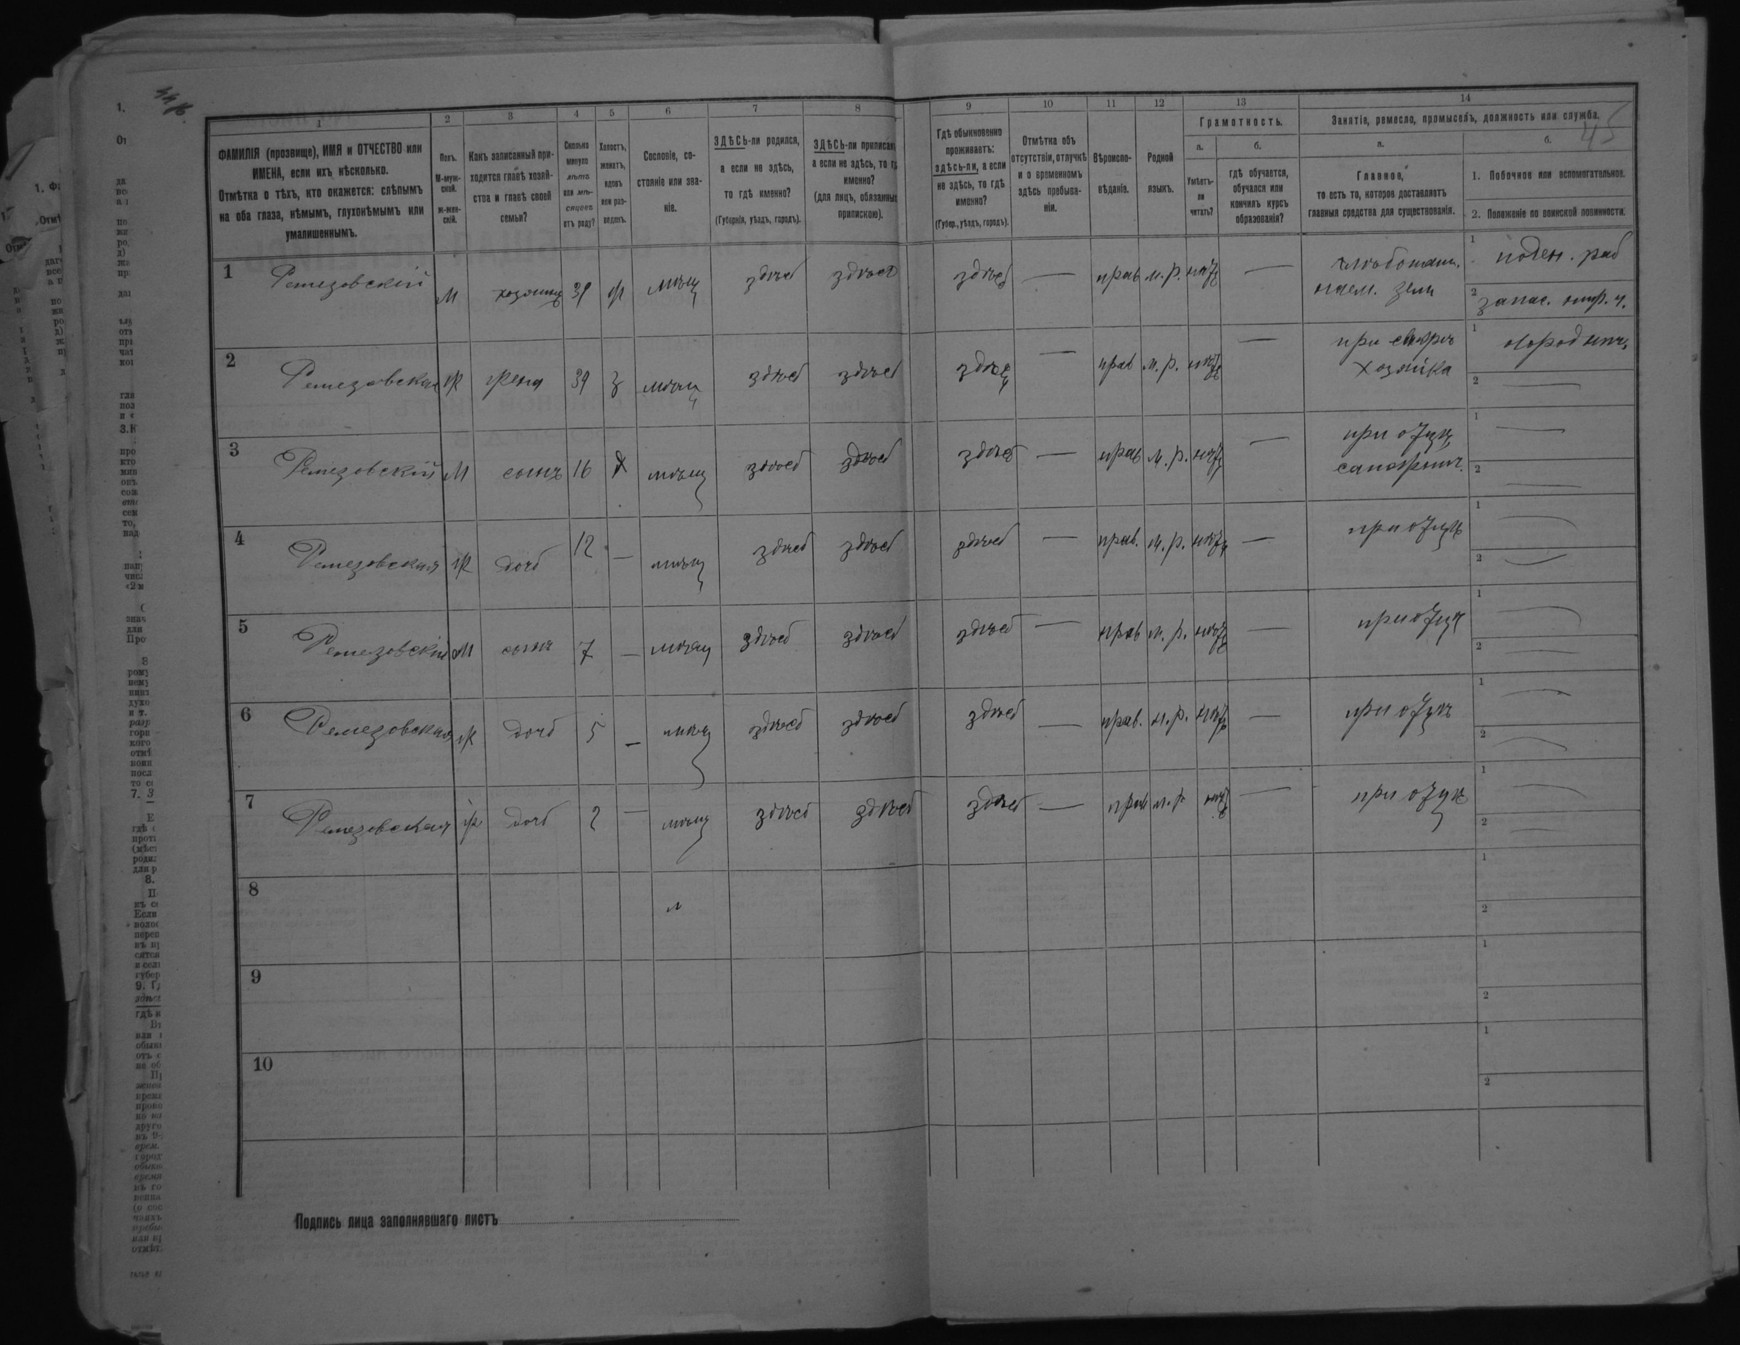 45
1
2
3
4
5
6
7
8
9
10
11
12
13
14
ФАМИЛІЯ (прозвище), ИМЯ и ОТЧЕСТВО или
ИМЕНА, если ихъ нѣсколько.
Отмѣтка о тѣхъ, кто окажется: слѣпымъ
на оба глаза, нѣмымъ, глухонѣмымъ или
умалишеннымъ.
Полъ.
М-муж-
ской.
ж-жен-
скій.
Какъ записанный при-
ходится главѣ хозяй-
ства и главѣ своей
семьи?
Сколько
минуло
лѣтъ
или мѣ-
сяцевъ
отъ роду?
Холостъ,
женатъ,
вдовъ
или раз-
веденъ.
Сословіе, со-
стояніе или зва-
ніе.
ЗДѢСЬ-ли родился,
а если не здѣсь,
то гдѣ именно?
(Губернія, уѣздъ, городъ).
ЗДѢСЬ-ли приписанъ,
а если не здѣсь, то гдѣ
именно?
(для лицъ, обязанныхъ
припискою).
Гдѣ обыкновенно
проживаетъ:
здѣсь-ли, а если
не здѣсь, то гдѣ
именно?
(Губер., уѣздъ, городъ).
Отмѣтка объ
отсутствіи, отлучкѣ
и о временномъ
здѣсь пребыва-
ніи.
Вѣроиспо-
вѣданіе.
Родной
языкъ.
Грамотность.
а.
Умѣетъ-
ли
читать?
б.
гдѣ обучается,
обучался или
кончилъ курсъ
образованія?
Занятіе, ремесло, промыселъ, должность или служба.
а.
Главное,
то есть то, которое доставляетъ
главныя средства для существованія.
б.
1. Побочное или вспомогательное.
2. Положеніе по воинской повинности.
1 Ремезовскій М хозяинъ 39 ж мѣщ здѣсь здѣсь здѣсь — прав м.р. нѣтъ —
наем. земл
1 поден. раб
2 запас.
2 Ремезовская ж жена 39 з мѣщ здѣсь здѣсь здѣсь — прав м.р. нѣтъ —
хозяйка
1
2 —
3 Ремезовскій М сынъ 16 х мѣщ здѣсь здѣсь здѣсь — прав м.р. нѣтъ — при отцѣ
сапожнич.
1 —
2 —
4 Ремезовская ж дочь 12 — мѣщ здѣсь здѣсь здѣсь — прав. м.р. нѣтъ — при отцѣ
1 —
2 —
5 Ремезовскій М сынъ 7 — мѣщ здѣсь здѣсь здѣсь — прав м.р. нѣтъ — при отцѣ
1 —
2 —
6 Ремезовская ж дочь 5 — мѣщ здѣсь здѣсь здѣсь — прав. м.р. нѣтъ — при отцѣ
1 —
2 —
7 Ремезовская ж дочь 2 — мѣщ здѣсь здѣсь здѣсь — прав м.р нѣтъ — при отцѣ
1 —
2 —
8
1
2
9
1
2
10
1
2
Подпись лица заполнявшаго листъ